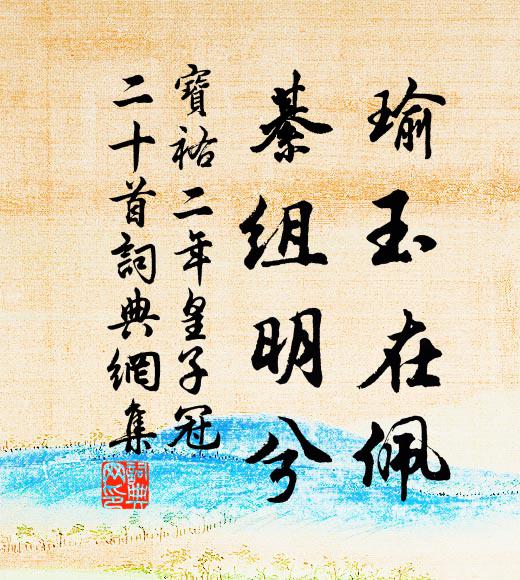 瑜玉在佩
綦組明兮
寶祐二年皇子冠
二十首詞典網集